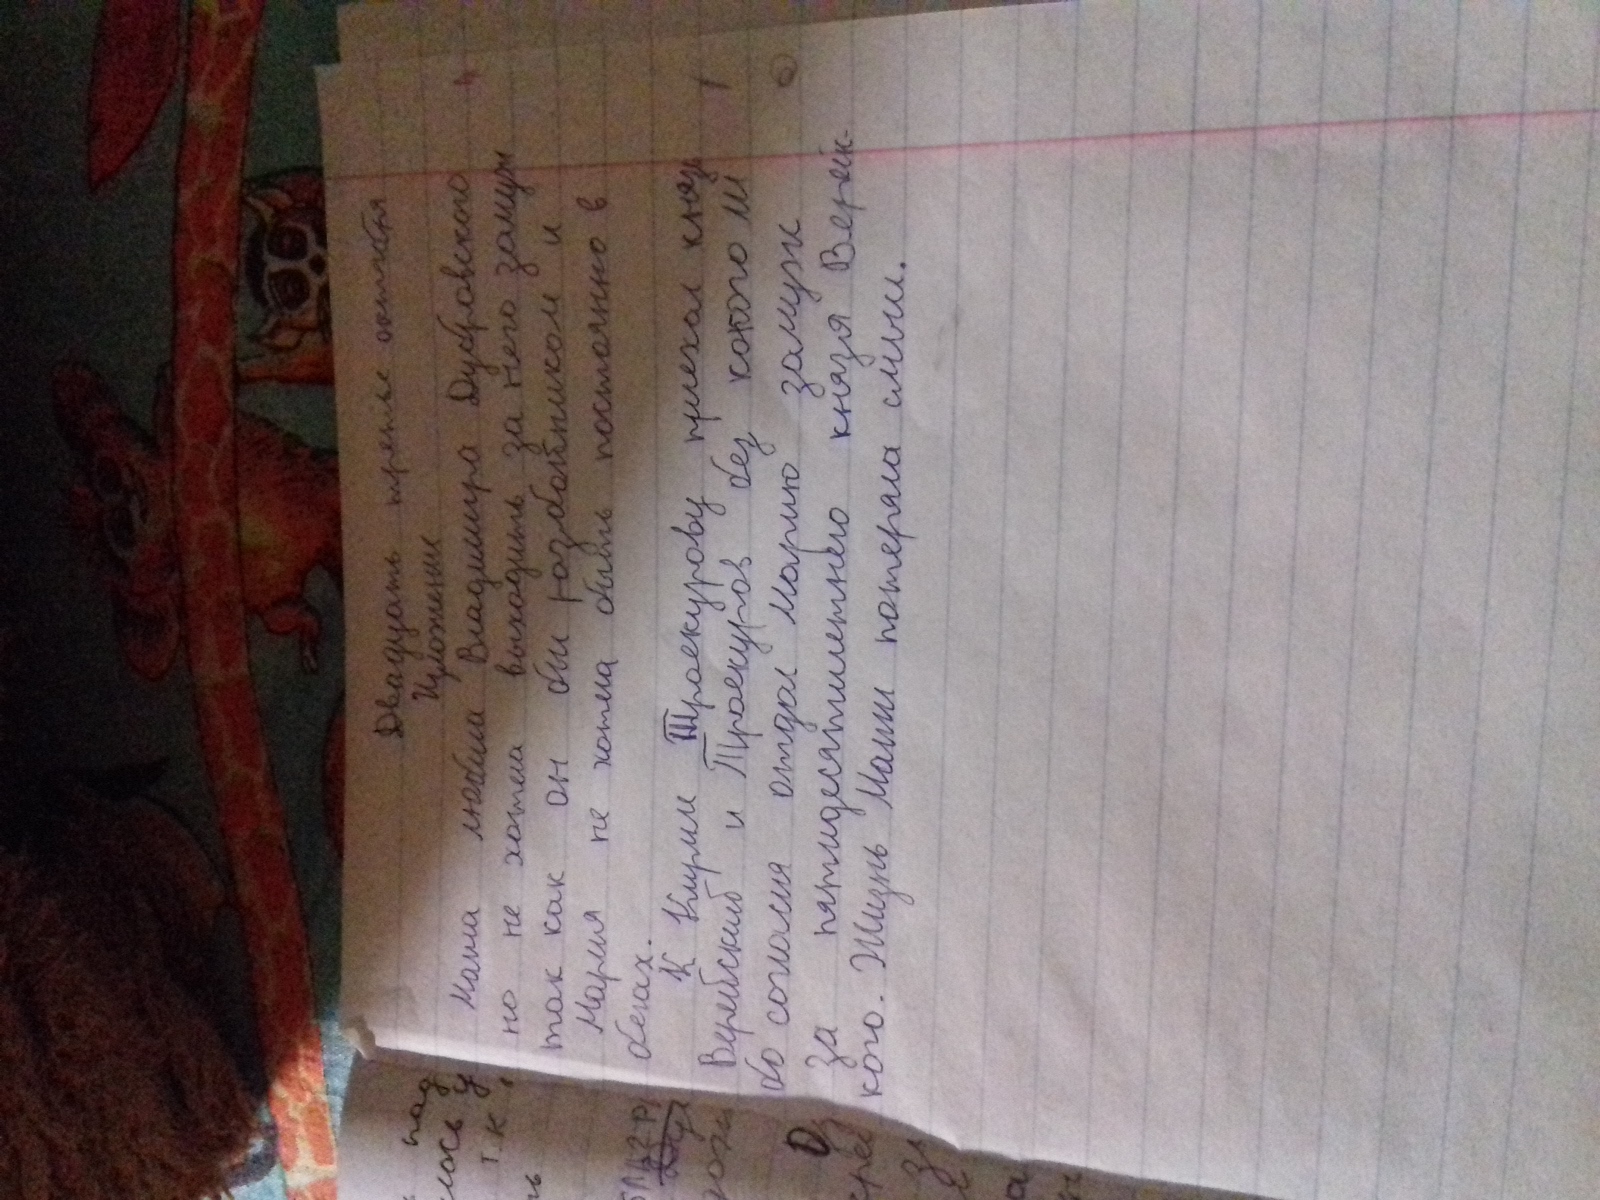 Двадцать третье октября
Изложение
Маша любила Владимира Дубровского
но не хотела выходить за него замуж
так как он был разбойником и
Мария не хотела быть постоянно в
бегах.
К Кириле Троекурову приехал князь
Верейский и Троекуров без какого ли
бо согласия отдал Марию замуж
за пятидесятилетнего князя Верейс-
кого. Жизнь Маши потеряла смысл.
пад
лось у
т.к